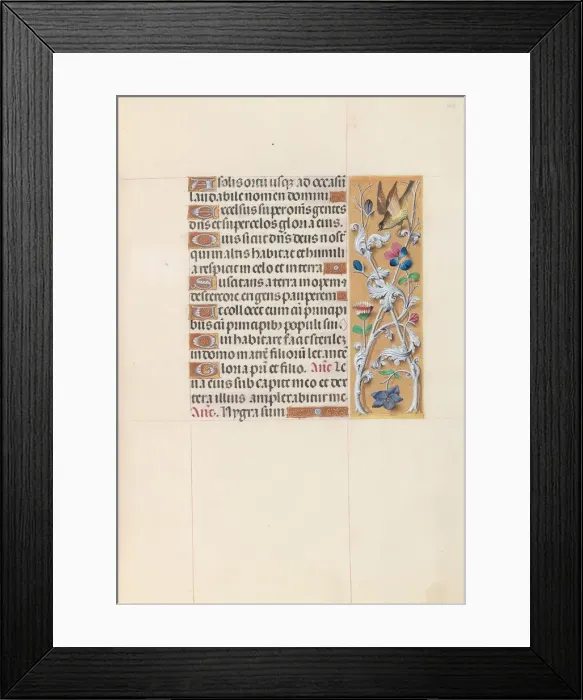 A solis ortu usq; ad occasū
laudabile nomen domini
Excelsus super om̄s gentes
dn̄s et super celos gloria eius.
Quis sicut dn̄s deus nost
qui in altis habitat et humili
a respicit in celo et in terra
Suscitans a terra inopem
de stercore erigens pauperem
Ut collocet eum cū principi
bus cū principib; populi sui
Qui habitare facit sterilē
in domo matrē filiorū letantē
Gloria pr̄i et filio. Añe Le
ua eius sub capite meo et dex
tera illius amplexabitur me
Añe. Nygra sum